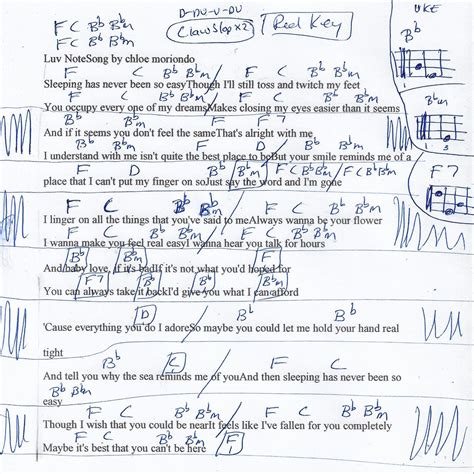 F C Bb Bbm
D-DU-U-DU
UKE
F C Bb Bbm
Clawslap x2
Red Key
Bb
Luv NoteSong by chloe moriondo
F C Bb Bbm F C Bb Bbm
Sleeping has never been so easyThough I'll still toss and twitch my feet
F C Bb Bbm F C Bb Bbm
You occupy every one of my dreamsMakes closing my eyes easier than it seems
Bbm
Bb Bbm F F7
And if it seems you don't feel the sameThat's alright with me,
F D Bb C
I understand with me isn't quite the best place to boBut your smile reminds me of a
F D Bbm F C Bb Bbm / F C Bb Bbm
F7
place that I can't put my finger on soJust say the word and I'm gone
F C Bb Bbm F C Bb Bbm
I linger on all the things that you've said to meAlways wanna be your flower
F C Bb Bbm F C Bb Bbm
I wanna make you feel real easyI wanna hear you talk for hours
Bb Bbm F
And/baby love, if it's badIf it's not what you'd hoped for
F7 Bb Bbm F
You can always take it backI'd give you what I can afford
D Bb Bbm
'Cause everything you do I adoreSo maybe you could let me hold your hand real
tight
Bb C F C
And tell you why the sea reminds me of youAnd then sleeping has never been so
Bb Bbm
easy
F C Bb Bbm F C Bb Bbm
Though I wish that you could be nearIt feels like I've fallen for you completely
F C Bb Bbm F
Maybe it's best that you can't be here
1